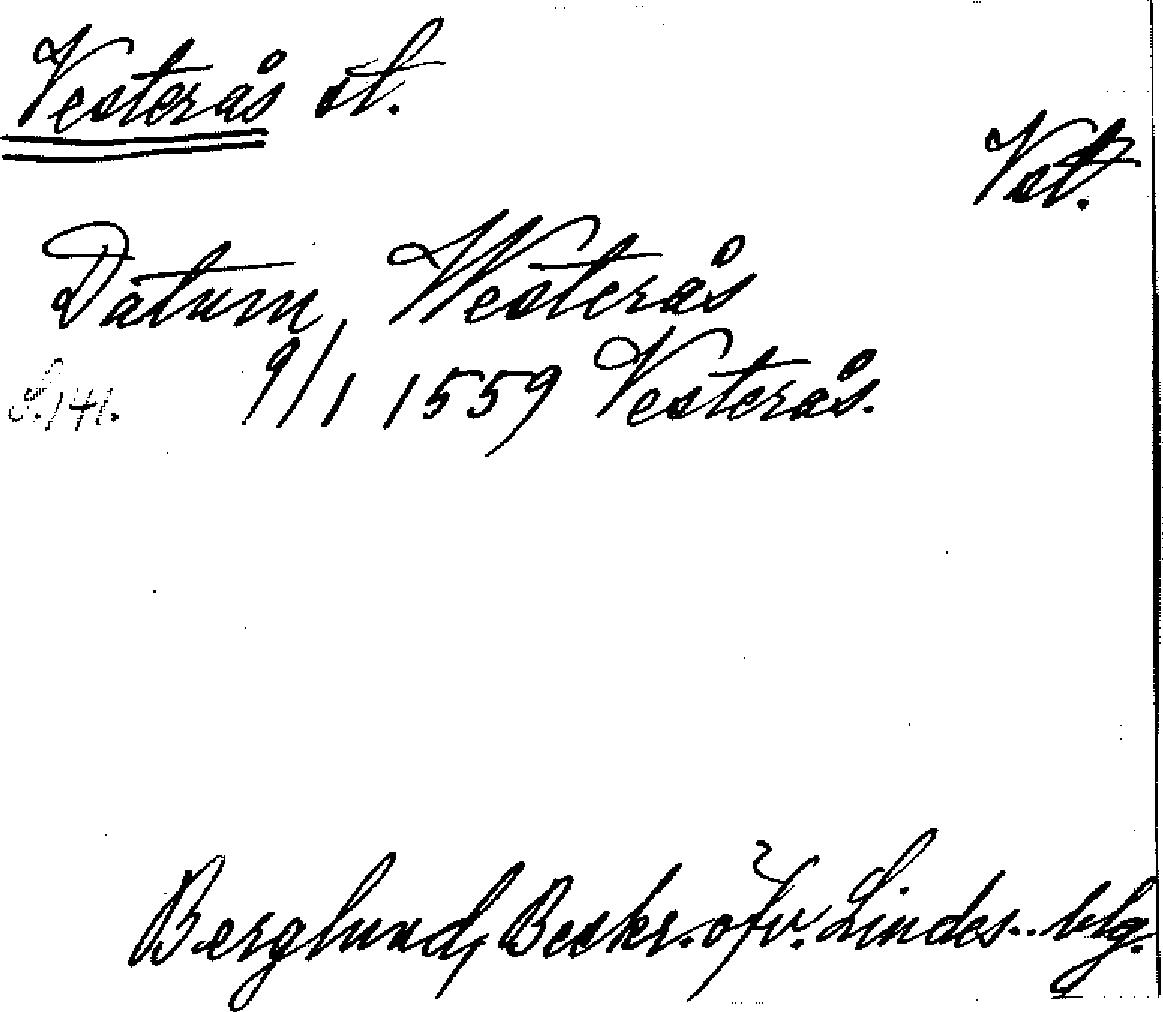 Vesterås st.
Vst.
Datum Westerås
S. 141. 9/1 1559 Vesterås.
Berglund, Beskr. öfv. Lindes-blg.